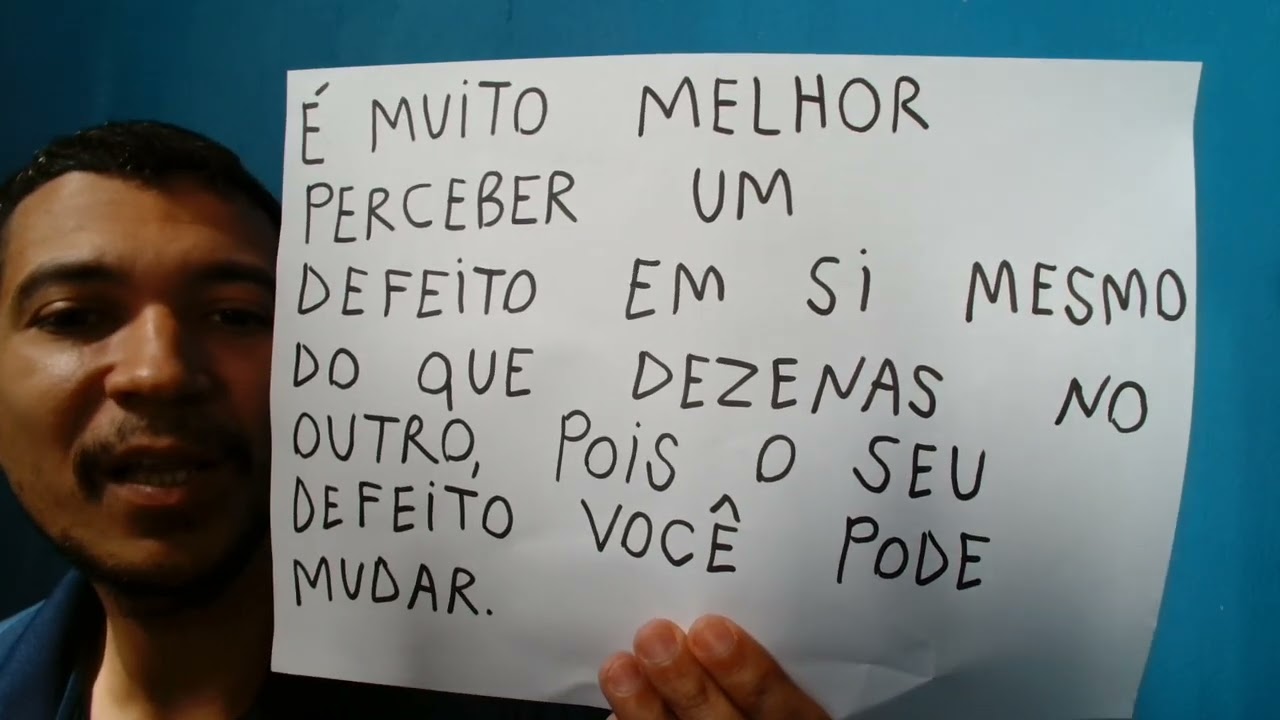 É MUITO MELHOR
PERCEBER UM
DEFEITO EM SI MESMO
DO QUE DEZENAS NO
OUTRO, POIS O SEU
DEFEITO VOCÊ PODE
MUDAR.